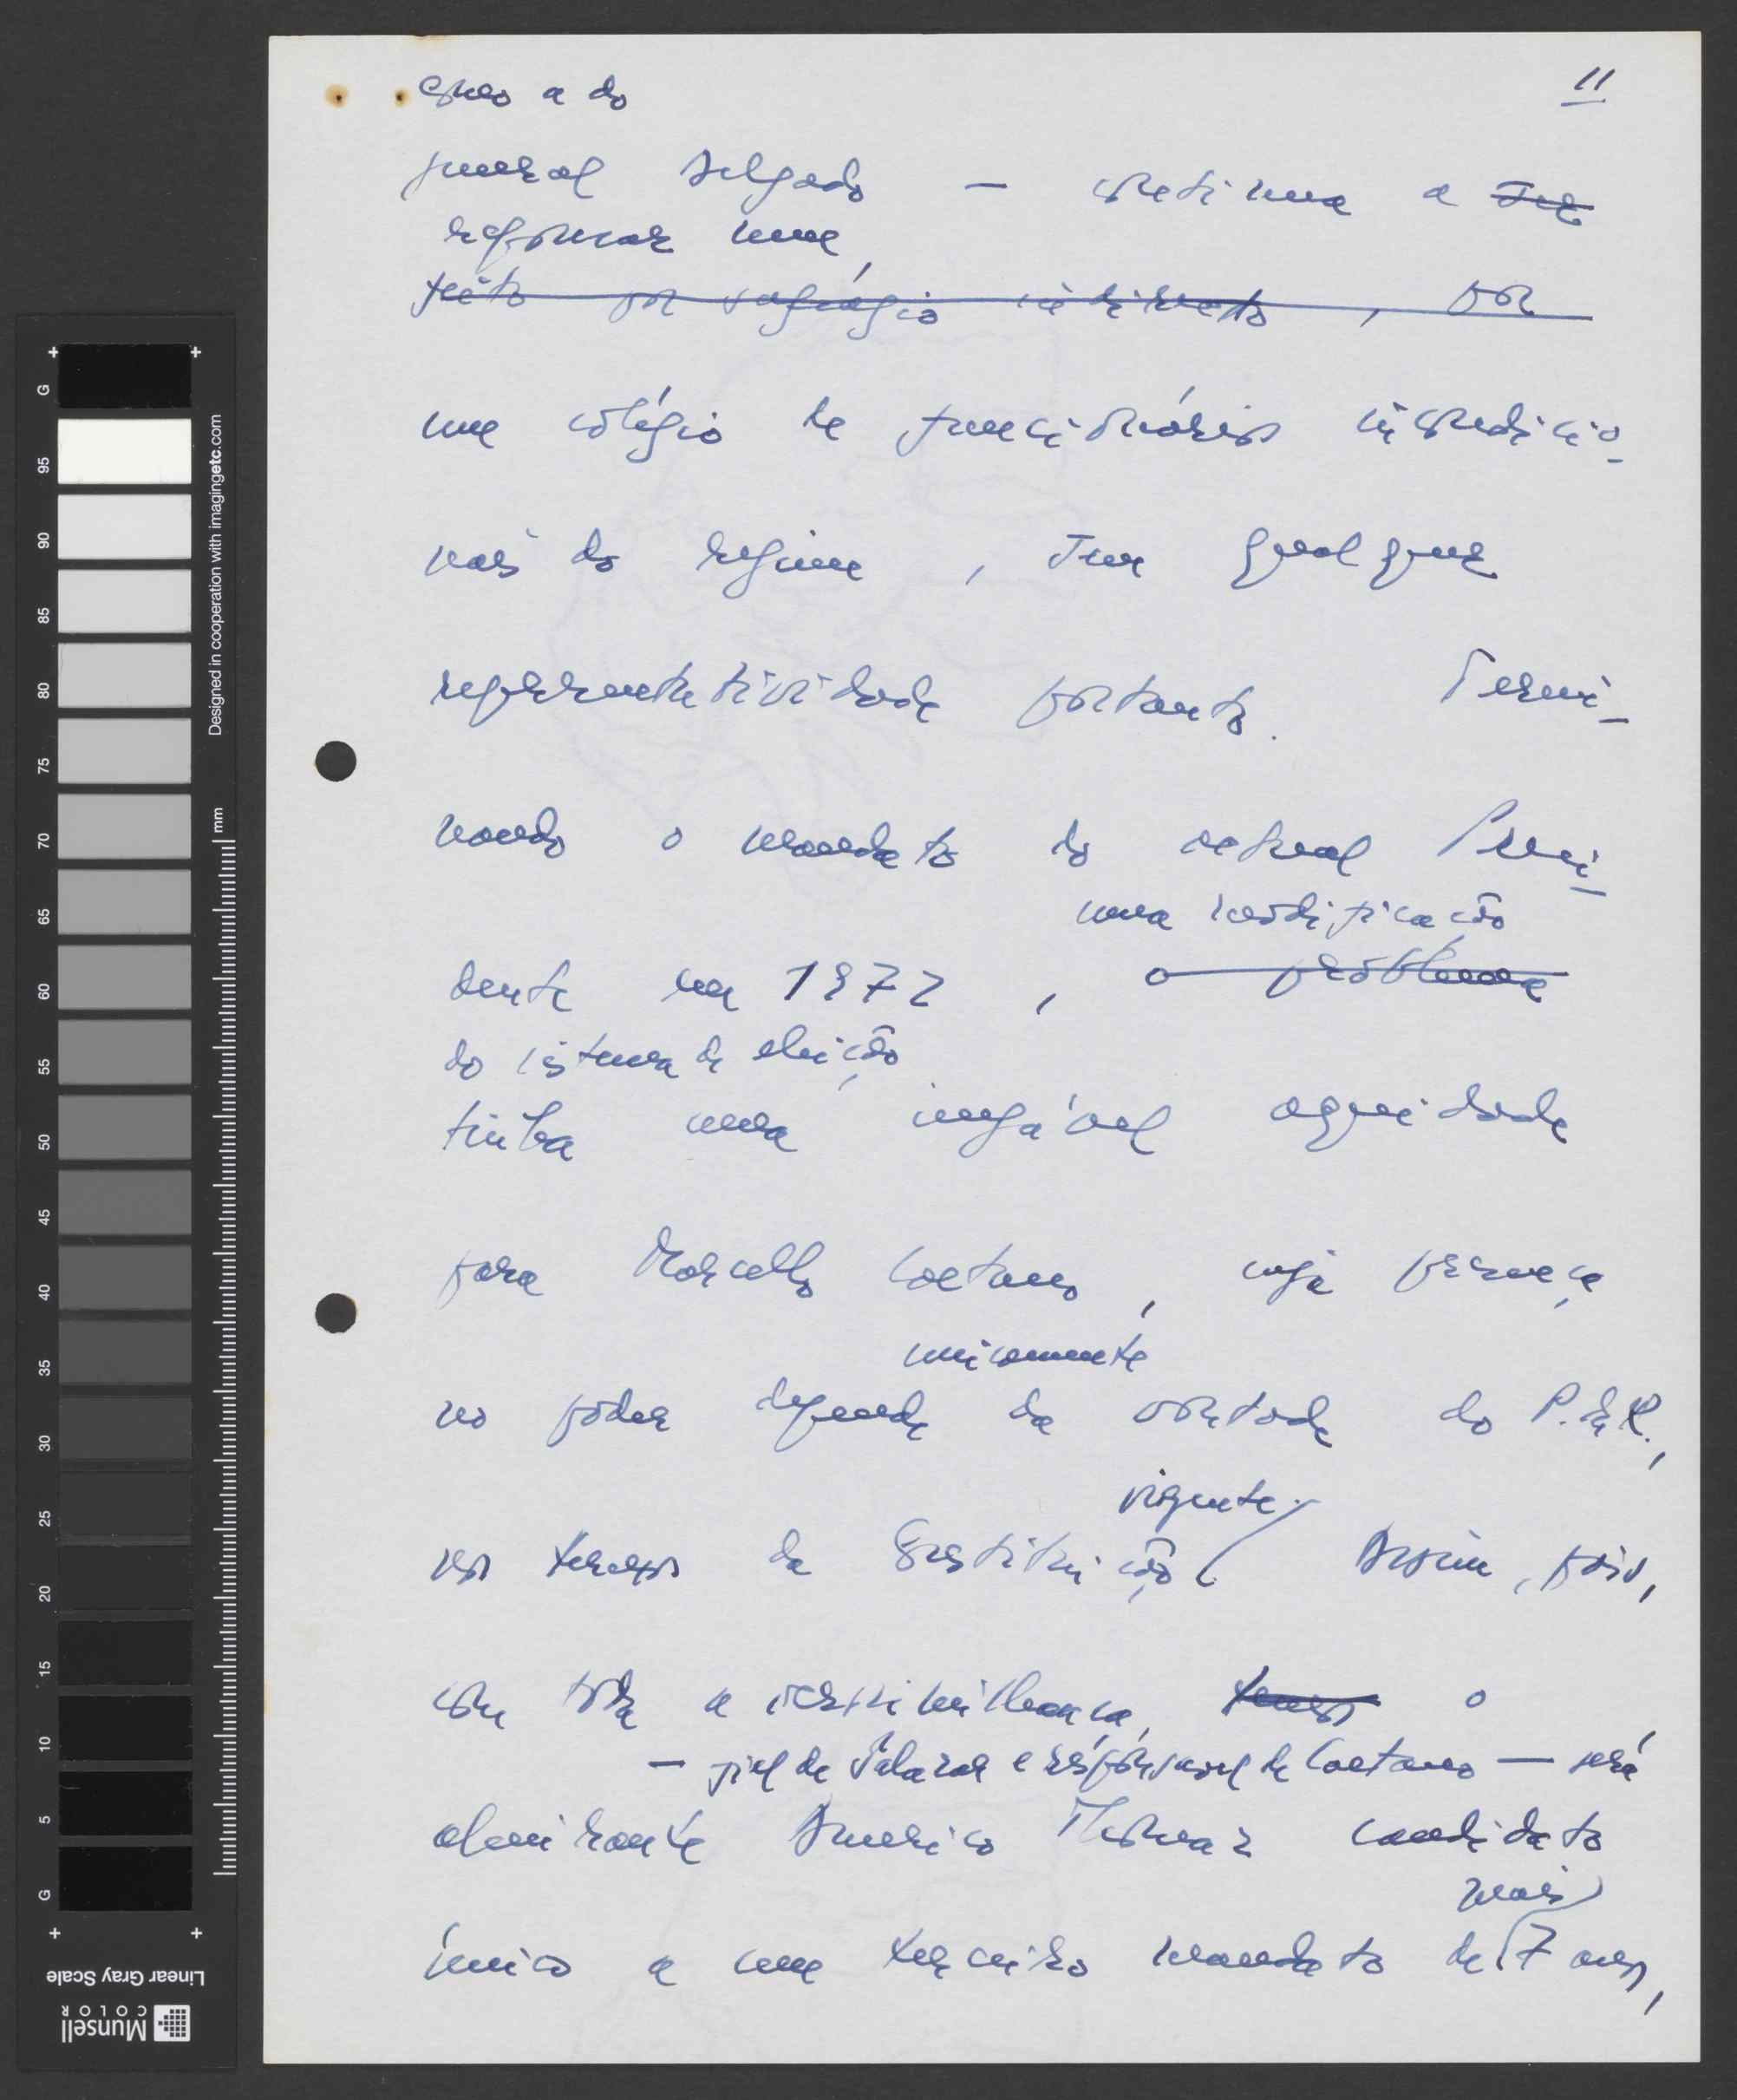 como a do
11
general Delgado — continua a ser
repousar num
feito por sufrágio indirecto, por
um colégio de funcionários incondicio-
nais do regime, sem qualquer
representatividade portanto. Termi-
nando o mandato do actual Presi-
uma modificação
dente em 1972, o problema
do sistema de eleição
tinha uma inegável acuidade
para Marcello Caetano, cuja presença
unicamente
no poder depende da vontade do P. da R.,
vigente.
nos termos da Constituição. Assim, pois,
com toda a verosimilhança, temos o
— fiel de Salazar e responsável de Caetano — será
almirante Américo Thomaz candidato
mais
único a um terceiro mandato de 7 anos,
G
95
90
85
80
75
70
65
60
55
50
45
40
35
30
25
20
15
10
5
G
mm
Designed in cooperation with imagingetc.com
Linear Gray Scale
Munsell
COLOR